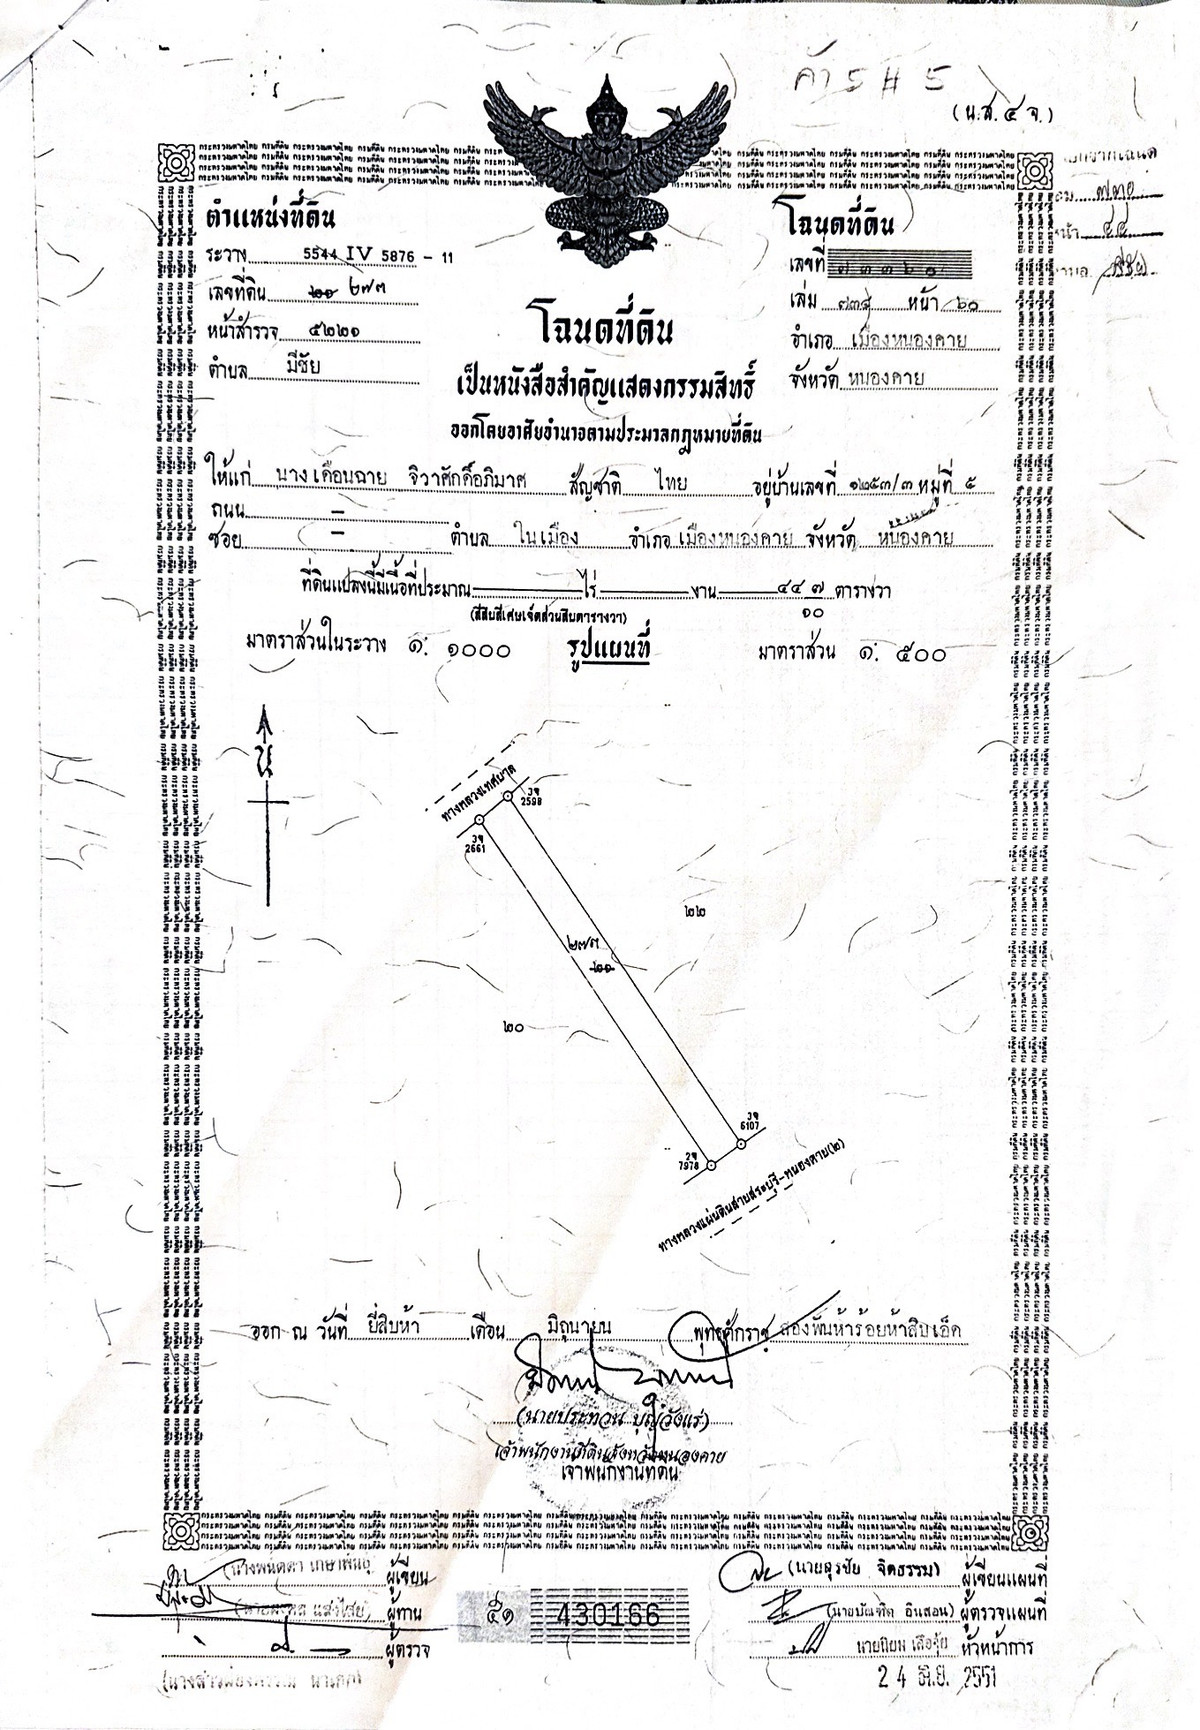 คำ ๕ # ๕
(น.ส.๔ จ.)
ตำแหน่งที่ดิน
ระวาง 5544 IV 5876 - 11
เลขที่ดิน ๒๑ ๒๗๓
หน้าสำรวจ ๕๒๒๑
ตำบล มีชัย
โฉนดที่ดิน
เลขที่ ๗๓๓๖๐
เล่ม ๗๓๔ หน้า ๖๐
อำเภอ เมืองหนองคาย
จังหวัด หนองคาย
โฉนดที่ดิน
เป็นหนังสือสำคัญแสดงกรรมสิทธิ์
ออกโดยอาศัยอำนาจตามประมวลกฎหมายที่ดิน
ให้แก่ นางเดือนฉาย จิวาศักดิ์อภิมาศ สัญชาติ ไทย อยู่บ้านเลขที่ ๑๒๕๓/๓ หมู่ที่ ๕
ถนน -
ซอย - ตำบล ในเมือง อำเภอ เมืองหนองคาย จังหวัด หนองคาย
ที่ดินแปลงนี้มีเนื้อที่ประมาณ ไร่ งาน ๔๔ ๗/๑๐ ตารางวา
(สี่สิบสี่เศษเจ็ดส่วนสิบตารางวา)
มาตราส่วนในระวาง ๑: ๑๐๐๐ รูปแผนที่ มาตราส่วน ๑: ๕๐๐
น
ทางหลวงเทศบาล
3ฉ
2598
3ฉ
2661
๒๒
๒๗๓
๒๑
๒๐
3ฉ
6107
2ฉ
7978
ทางหลวงแผ่นดินสายสระบุรี-หนองคาย(๒)
ออก ณ วันที่ ยี่สิบห้า เดือน มิถุนายน พุทธศักราช สองพันห้าร้อยห้าสิบเอ็ด
(นายประทวน บุญวังแร่)
เจ้าพนักงานที่ดินจังหวัดหนองคาย
เจ้าพนักงานที่ดิน
ผู้เขียน
ผู้ทาน
ผู้ตรวจ
๕๑ 430166
(นายสุรชัย จิตธรรม) ผู้เขียนแผนที่
(นายบัณฑิต อินสอน) ผู้ตรวจแผนที่
นายนิยม เสืออุ้ย หัวหน้าการ
24 มิ.ย. 2551